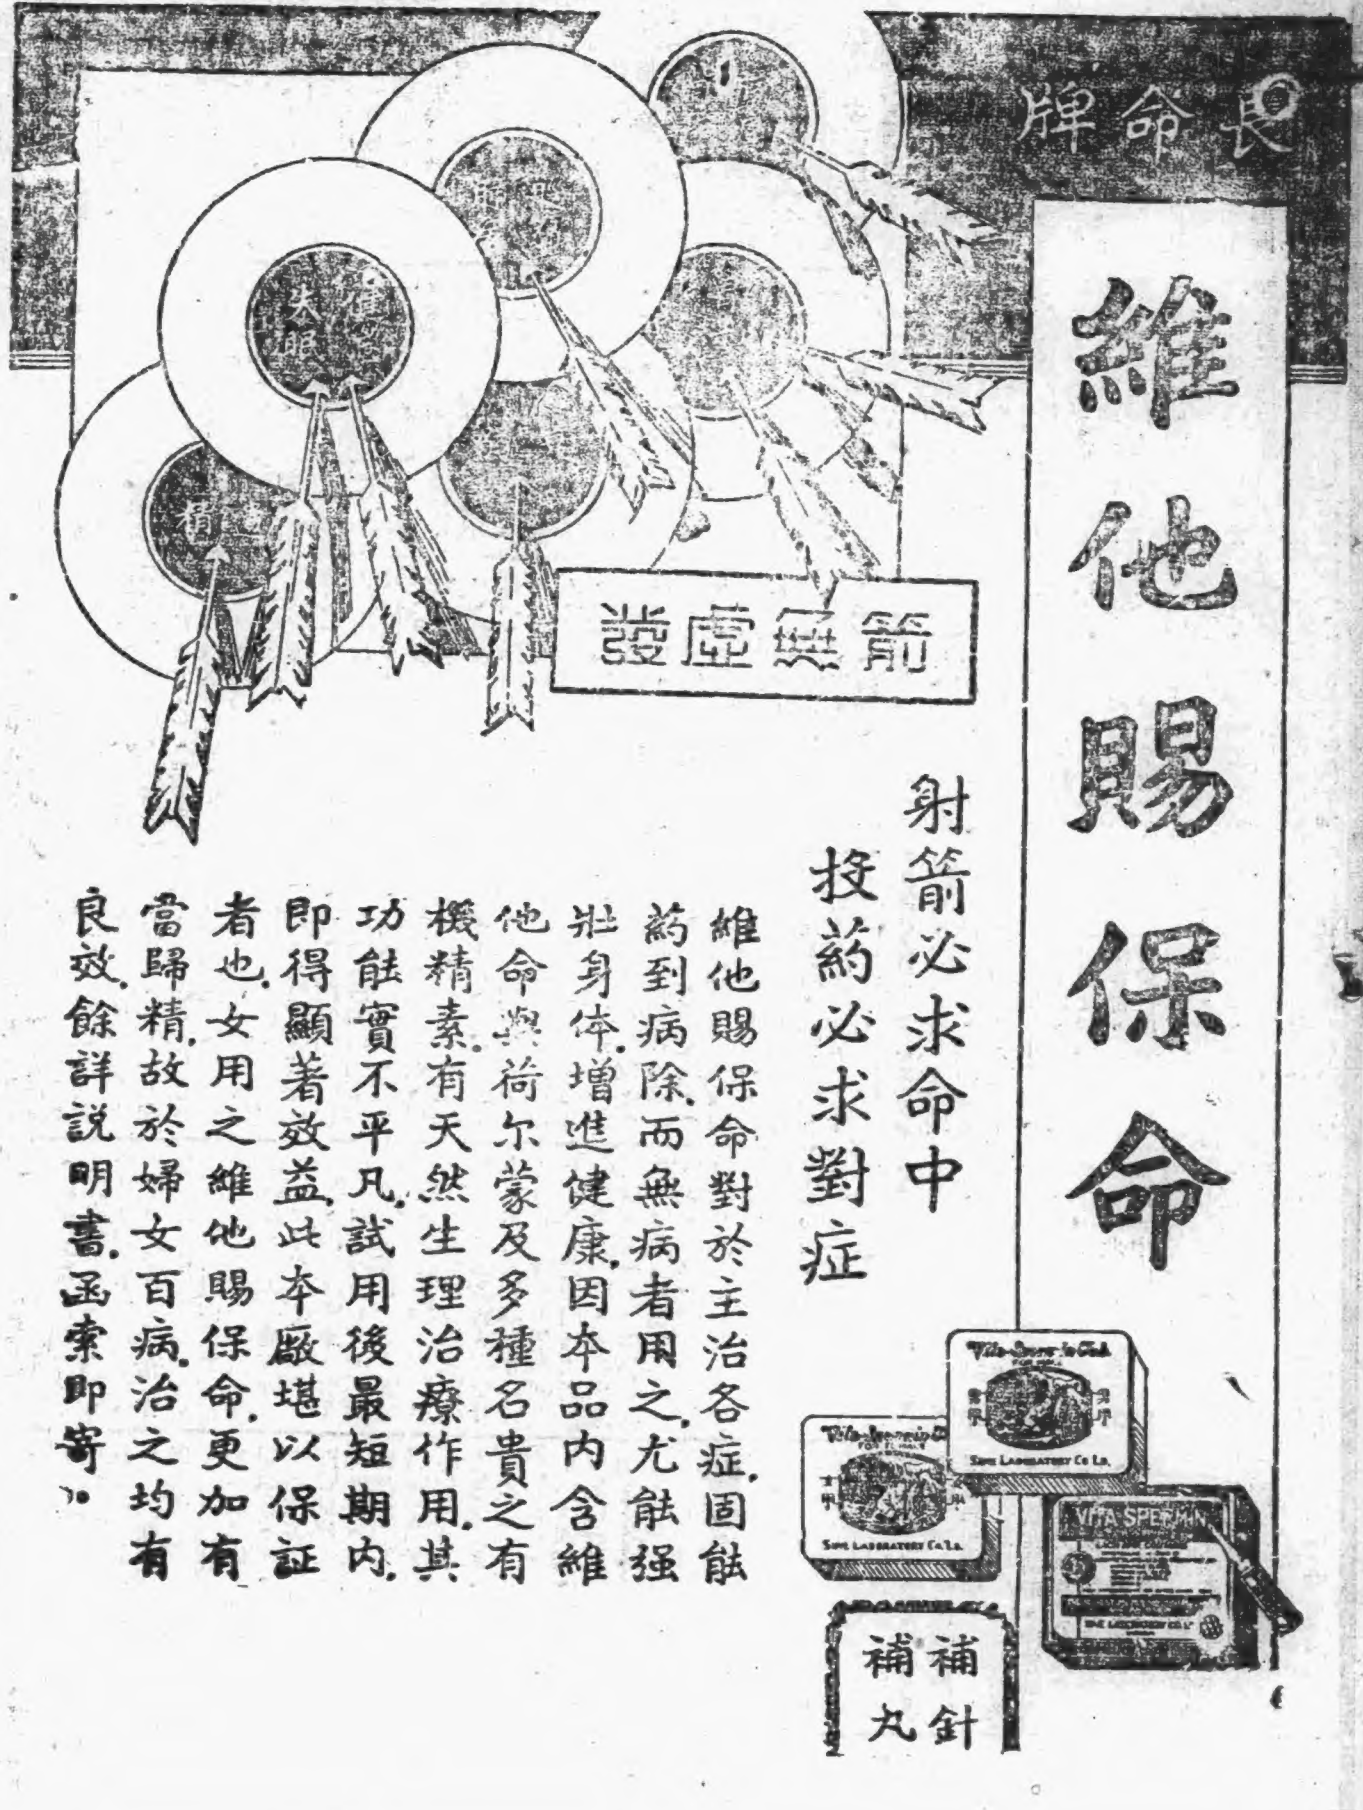 長命牌
維他賜保命
失眠
精
箭無虛發
射箭必求命中
投葯必求對症
維他賜保命對於主治各症.固能
葯到病除.而無病者用之.尤能强
壯身体.增進健康.因本品内含維
他命與荷尔蒙及多種名貴之有
機精素.有天然生理治療作用.其
功能實不平凡.試用後最短期内.
即得顯著效益.此本廠堪以保証
者也.女用之維他賜保命.更加有
當歸精.故於婦女百病.治之均有
良效.餘詳説明書.函索即寄。
SINE LABORATORY CO LD.
SINE LABORATORY CO LD.
VITA SPERMIN
補針
補丸